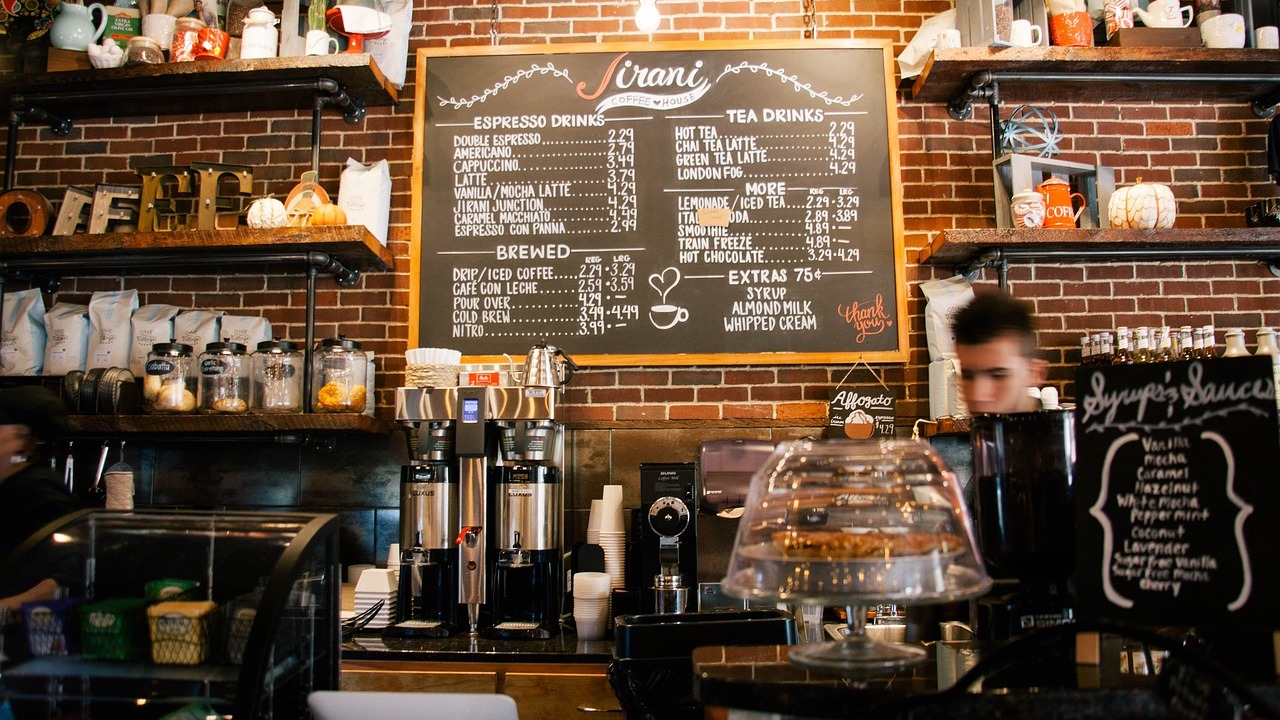 Jirani
COFFEE HOUSE
ESPRESSO DRINKS
DOUBLE ESPRESSO 2.29
AMERICANO 2.79
CAPPUCCINO 3.49
LATTE 3.79
VANILLA/MOCHA LATTE 4.29
JIRANI JUNCTION 4.29
CARAMEL MACCHIATO 4.49
ESPRESSO CON PANNA 2.99
BREWED
REG LRG
DRIP/ICED COFFEE 2.29 • 3.29
CAFÉ CON LECHE 2.59 • 3.59
POUR OVER 4.29 • —
COLD BREW 3.49 • 4.49
NITRO 3.99 • —
TEA DRINKS
HOT TEA 2.29
CHAI TEA LATTE 4.29
GREEN TEA LATTE 4.29
LONDON FOG 4.29
MORE REG LRG
LEMONADE/ICED TEA 2.29 • 3.29
ITAL ODA 2.89 • 3.89
SMOOTHIE 4.89 • —
TRAIN FREEZE 4.89 • —
HOT CHOCOLATE 3.29 • 4.29
EXTRAS 75¢
SYRUP
ALMOND MILK
WHIPPED CREAM
thank
you
Affogato
$4.29
COFFEE
Syrup's Sauces
Vanilla
mocha
Caramel
Hazelnut
White mocha
Peppermint
Coconut
Lavender
Sugar free Vanilla
Sugar free mocha
cherry
LUXUS
LUXUS
BUNN